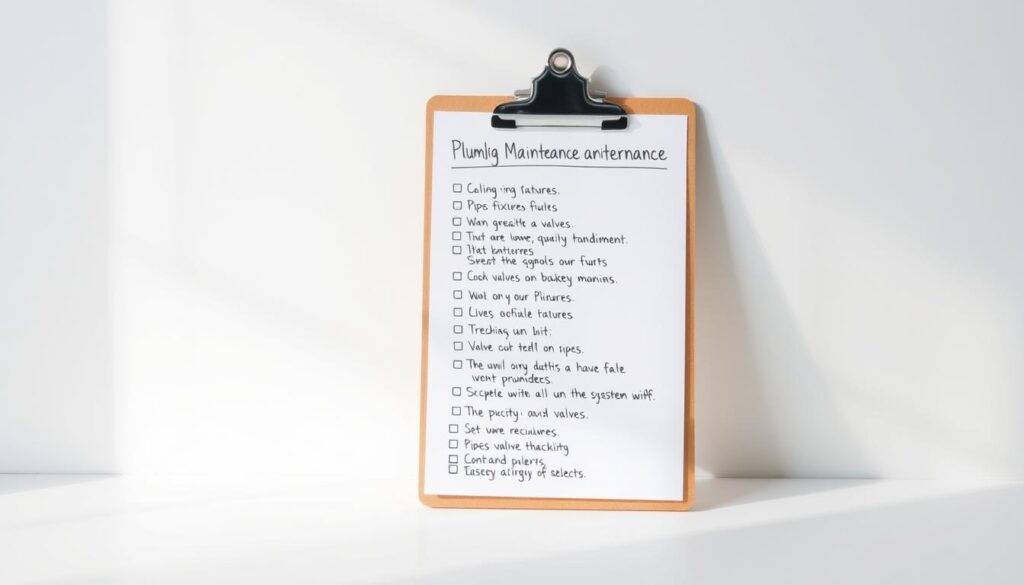 Plumlig Mainteance aniternance
Caling ing fatures.
Pips fixures fiules
Wan greatle a valves.
That are lowe, qualiy tandiment.
That battterres
Sreat the ggnols our furts
Cock valves on bakey manins.
Wol on y our Plinures.
Lives ochale fatures
Treching un bit:
Valve cut tell on ripes.
The unil ony daths a have fale
went prumiders.
Sccpele with all un the sysstem wiff.
The pucity, and valves.
Set ure reciaures.
Pipes valive thackitg
Cont and pilerts,
Easecy alirgy of selects.